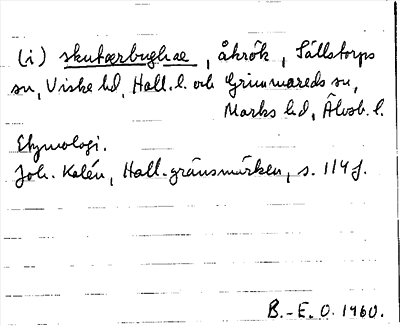 (i) skutærbughæ, åkrök, Sällstorps
sn, Viske hd, Hall. l. och Grimmareds sn,
Marks hd, Älvsb. l.
Etymologi.
Joh. Kalén, Hall. gränsmärken, s. 114 f.
B.-E. O. 1960.